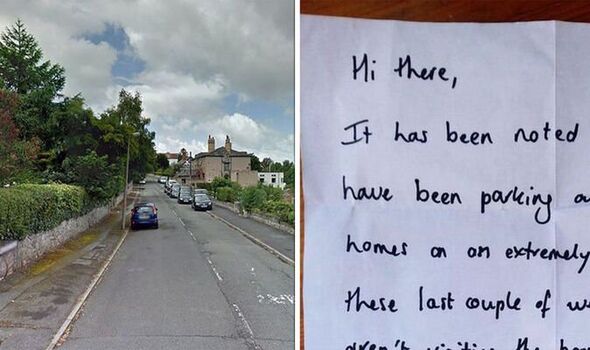 Hi there,
It has been noted
have been parking
homes on an extremely
these last couple of
aren't visiting the